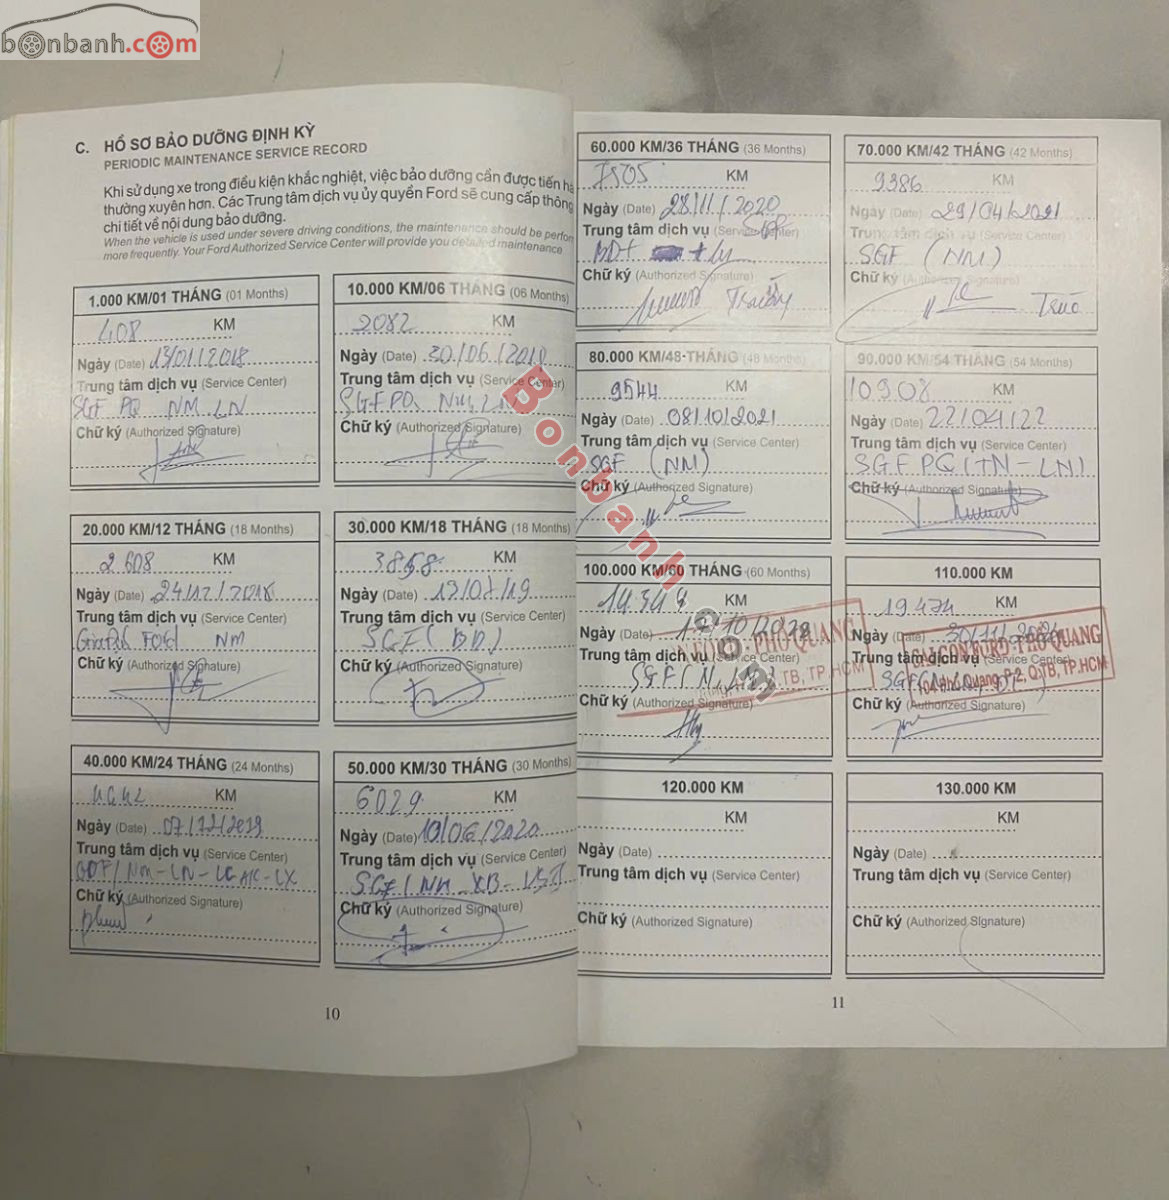 bonbanh.com
C. HỒ SƠ BẢO DƯỠNG ĐỊNH KỲ
PERIODIC MAINTENANCE SERVICE RECORD
Khi sử dụng xe trong điều kiện khắc nghiệt, việc bảo dưỡng cần được tiến hà
thường xuyên hơn. Các Trung tâm dịch vụ ủy quyền Ford sẽ cung cấp thông
chi tiết về nội dung bảo dưỡng.
When the vehicle is used under severe driving conditions, the maintenance should be perfor
more frequently. Your Ford Authorized Service Center will provide you detailed maintenance
1.000 KM/01 THÁNG (01 Months)
408 KM
Ngày (Date) 13/01/2018
Trung tâm dịch vụ (Service Center)
SGF PQ NM LN
Chữ ký (Authorized Signature)
10.000 KM/06 THÁNG (06 Months)
2082 KM
Ngày (Date) 30/06/2018
Trung tâm dịch vụ (Service Center)
SGFPQ NM, LN
Chữ ký (Authorized Signature)
20.000 KM/12 THÁNG (18 Months)
2608 KM
Ngày (Date) 24/12/2018
Trung tâm dịch vụ (Service Center)
Ford NM
Chữ ký (Authorized Signature)
30.000 KM/18 THÁNG (18 Months)
3858 KM
Ngày (Date) 13/07/19
Trung tâm dịch vụ (Service Center)
SGF (BD)
Chữ ký (Authorized Signature)
40.000 KM/24 THÁNG (24 Months)
KM
Ngày (Date) 07/12/2019
Trung tâm dịch vụ (Service Center)
Chữ ký (Authorized Signature)
50.000 KM/30 THÁNG (30 Months)
6029 KM
Ngày (Date) 10/06/2020
Trung tâm dịch vụ (Service Center)
Chữ ký (Authorized Signature)
10
60.000 KM/36 THÁNG (36 Months)
7505 KM
Ngày (Date) 28/11/2020
Trung tâm dịch vụ (Service Center)
Chữ ký (Authorized Signature)
70.000 KM/42 THÁNG (42 Months)
9386 KM
Ngày (Date) 29/04/2021
Trung tâm dịch vụ (Service Center)
SGF (NM)
Chữ ký (Authorized Signature)
Trúc
80.000 KM/48 THÁNG (48 Months)
9544 KM
Ngày (Date) 08/10/2021
Trung tâm dịch vụ (Service Center)
SGF (NM)
Chữ ký (Authorized Signature)
90.000 KM/54 THÁNG (54 Months)
10908 KM
Ngày (Date) 22/04/22
Trung tâm dịch vụ (Service Center)
SGF PQ (TN - LN)
Chữ ký (Authorized Signature)
100.000 KM/60 THÁNG (60 Months)
KM
Ngày (Date)
Trung tâm dịch vụ (Service Center)
Chữ ký (Authorized Signature)
PHỔ QUANG
TB, TP.HCM
110.000 KM
19474 KM
Ngày (Date)
Trung tâm dịch vụ (Service Center)
Chữ ký (Authorized Signature)
SAIGON FORD - PHỔ QUANG
104 Phổ Quang, P.2, Q.TB, TP.HCM
120.000 KM
KM
Ngày (Date)
Trung tâm dịch vụ (Service Center)
Chữ ký (Authorized Signature)
130.000 KM
KM
Ngày (Date)
Trung tâm dịch vụ (Service Center)
Chữ ký (Authorized Signature)
11
Bonbanh.com